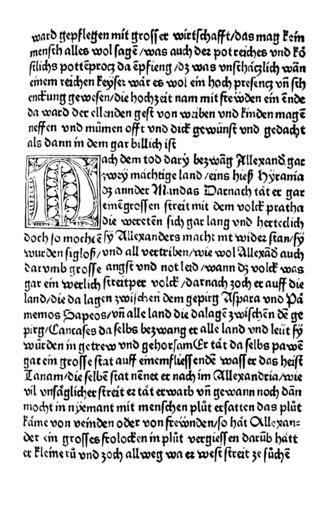 ward gepflegen mit grosser wirtschafft/das mag kein
mensch alles wol sagē/was auch der pot reiches vnd kö
stlichs pottēprotz da ēpfieng/dz was vnschäczlich wān
einem reichen keyser wär es wol ein hoch presencz vn̄ sch
enckung gewesen/die hochzeit nam mit frewden ein ende
da ward der ellenden gest von weiben vnd kinden magē
neffen vnd mümen offt vnd dick gewünst vnd gedacht
als dann in dem gar billich ist
Nach dem tod dary bezwāg Allexand gar
zwey mächtige land/eins hieß Hyrania
dz annder Mandas Darnach tät er gar
eim̄ grossen streit mit dem volck pratha
die wereten sich gar lang vnd hertteclich
doch so mochtē sy Allexanders macht nit widerstan/sy
wurden sigloß/vnd all vertriben/wie wol Allexād auch
darumb grosse angst vnd not leid/wann dz volck was
gar ein werlich streitper volck/darnach zoch er auff die
land/die da lagen zwischen dem gepirg Aspara vnd Pa
memos Sapeos/vn̄ alle land die da lagē zwischen dē ge
pirg/Caucases da selbs bezwang er alle land vnd leüt sy
würden in getrew vnd gehorsam Er tät da selbs pawē
gar ein grosse stat auff einem fliessendē wasser das heist
Tanam/die selbē stat nēnet er nach im Allexandria/wie
vil vnsäglicher streit er tät erwarb vn̄ gewann noch dān
mocht in nyemant mit menschen plůt ersatten das plůt
käme von veinden oder von freẅnden/so hät Allexan-
der ein grosses frolocken in plůt vergiessen darüb hatt
er kleine rů vnd zoch allweg wa er west streit ze sůchē